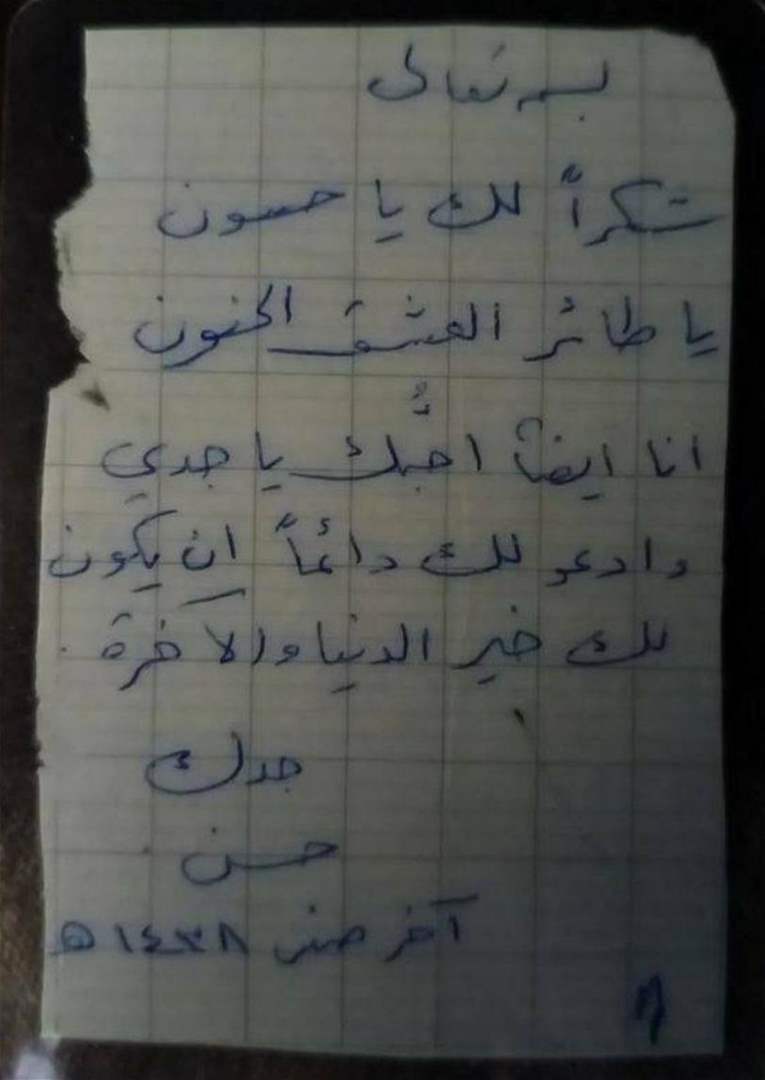 بسمه تعالى
شكراً لك يا حسون
يا طائر العشق الحنون
انا ايضاً احبُّك يا جدي
وادعو لك دائماً ان يكون
لك خير الدنيا والآخرة
جدك
حسن
آخر صفر ١٤٣٨ ه